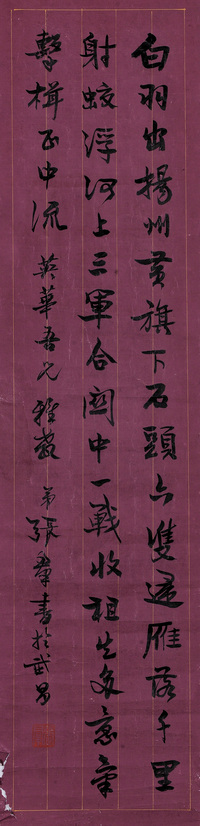 白羽出揚州黃旗下石頭六雙歸雁落千里
射蛟浮河上三軍合關中一戰收祖生多意氣
擊楫正中流 英華吾兄雅教 弟張羣書於武昌